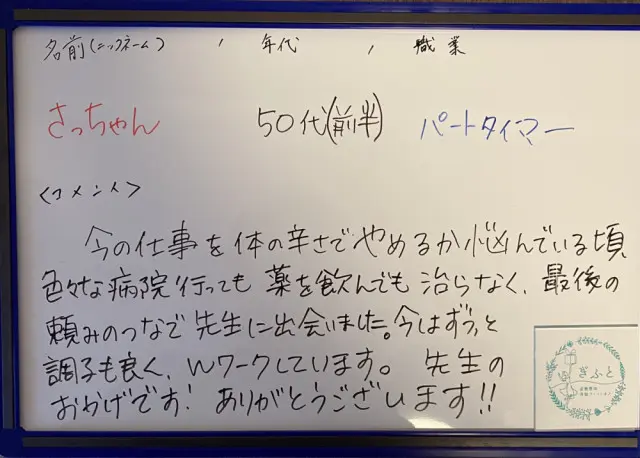 名前(ニックネーム) , 年代 , 職業
さっちゃん 50代(前半) パートタイマー
<コメント>
今の仕事を体の辛さでやめるか悩んでいる頃
色々な病院行っても薬を飲んでも治らなく、最後の
頼みのつなで先生に出会いました。今はずっと
調子も良く、Wワークしています。先生の
おかげです! ありがとうございます!!
ぎふと